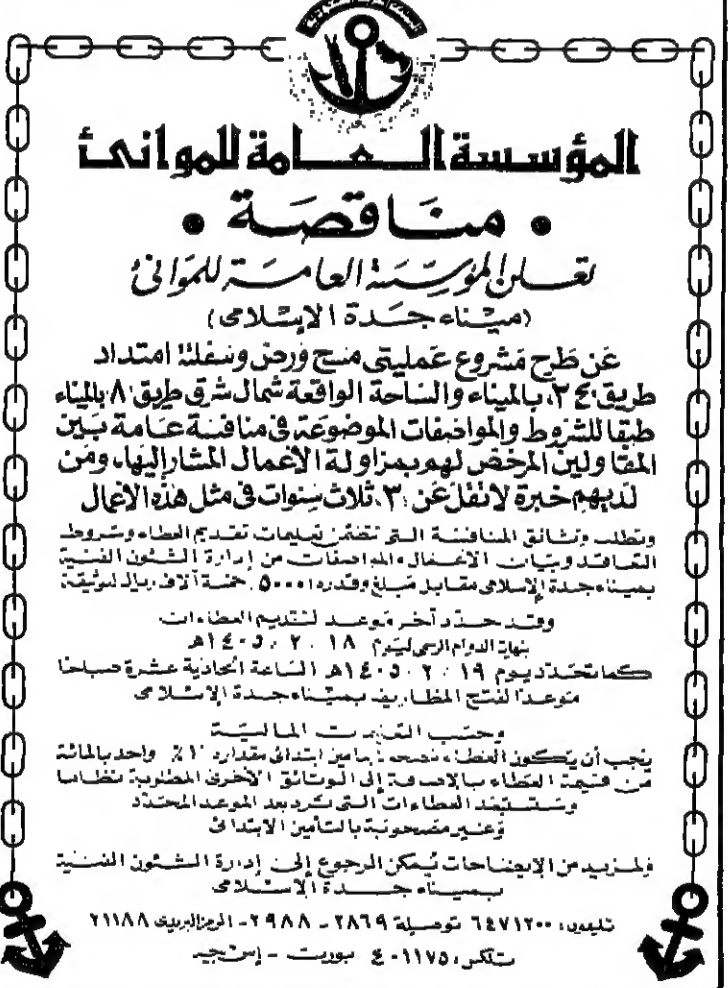 المؤسسة العامة للموانئ
• مناقصة •
تعلن المؤسسة العامة للموانئ
(ميناء جدة الإسلامي)
عن طرح مشروع عمليتي مسح ورص وسفلتة امتداد
طريق ٢٤، بالميناء والساحة الواقعة شمال شرق طريق ٨ بالميناء
طبقا للشروط والمواصفات الموضوعة في منافسة عامة بين
المقاولين المرخص لهم بمزاولة الأعمال المشار إليها، ومن
لديهم خبرة لا تقل عن ،٣، ثلاث سنوات في مثل هذه الأعمال
وتطلب وثائق المنافسة التي تتضمن تعليمات تقديم العطاء وشروط
التعاقد وبيان الأعمال والمواصفات من إدارة الشئون الفنية
بميناء جدة الإسلامي مقابل مبلغ وقدره ٥٠٠٠، خمسة آلاف ريال للوثيقة
وقد حدد آخر موعد لتقديم العطاءات
بنهاية الدوام الرسمي ليوم ١٨ . ٢ . ١٤٠٥هـ
كما تحدد يوم ١٩ . ٢ . ١٤٠٥هـ الساعة الحادية عشرة صباحا
موعدا لفتح المظاريف بميناء جدة الإسلامي
وحسب المالية
يجب أن يكون العطاء ابتدائي مقداره ١٪ واحد بالمائة
من قيمة العطاء بالإضافة إلى الوثائق الأخرى المطلوبة نظاما
وستستبعد العطاءات التي ترد بعد الموعد المحدد
وغير مصحوبة بالتأمين الابتدائي
ولمزيد من الإيضاحات يمكن الرجوع إلى إدارة الشئون الفنية
بميناء جدة الإسلامي
تليفون: ٦٤٧١٢٠٠ توصيلة ٢٨٦٩ - ٢٩٨٨ - الرمز البريدي ٢١١٨٨
تلكس: ٤٠١١٧٥ بورت - إس جيه